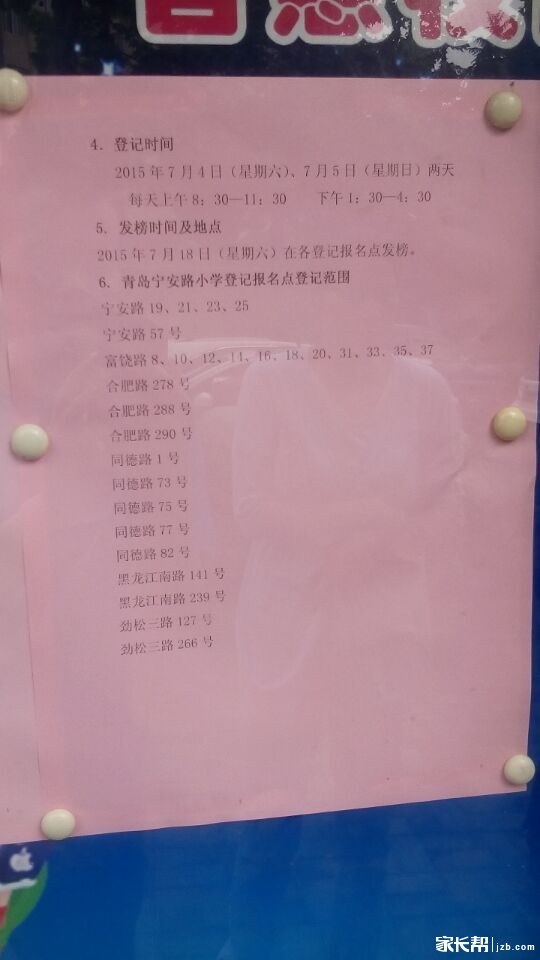 4. 登记时间
2015年7月4日（星期六）、7月5日（星期日）两天
每天上午8：30—11：30  下午1：30—4：30
5. 发榜时间及地点
2015年7月18日（星期六）在各登记报名点发榜。
6. 青岛宁安路小学登记报名点登记范围
宁安路19、21、23、25
宁安路57号
富饶路8、10、12、14、16、18、20、31、33、35、37
合肥路278号
合肥路288号
合肥路290号
同德路1号
同德路73号
同德路75号
同德路77号
同德路82号
黑龙江南路141号
黑龙江南路239号
劲松三路127号
劲松三路266号
家长帮 jzb.com